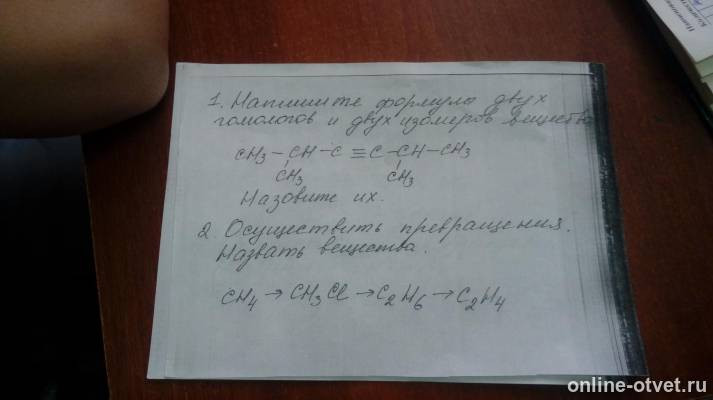 1. Напишите формулы двух
гомологов и двух изомеров вещества
CH3 – CH – C ≡ C – CH – CH3
CH3 CH3
Назовите их.
2. Осуществить превращения.
Назвать вещества.
CH4 → CH3Cl → C2H6 → C2H4
online-otvet.ru